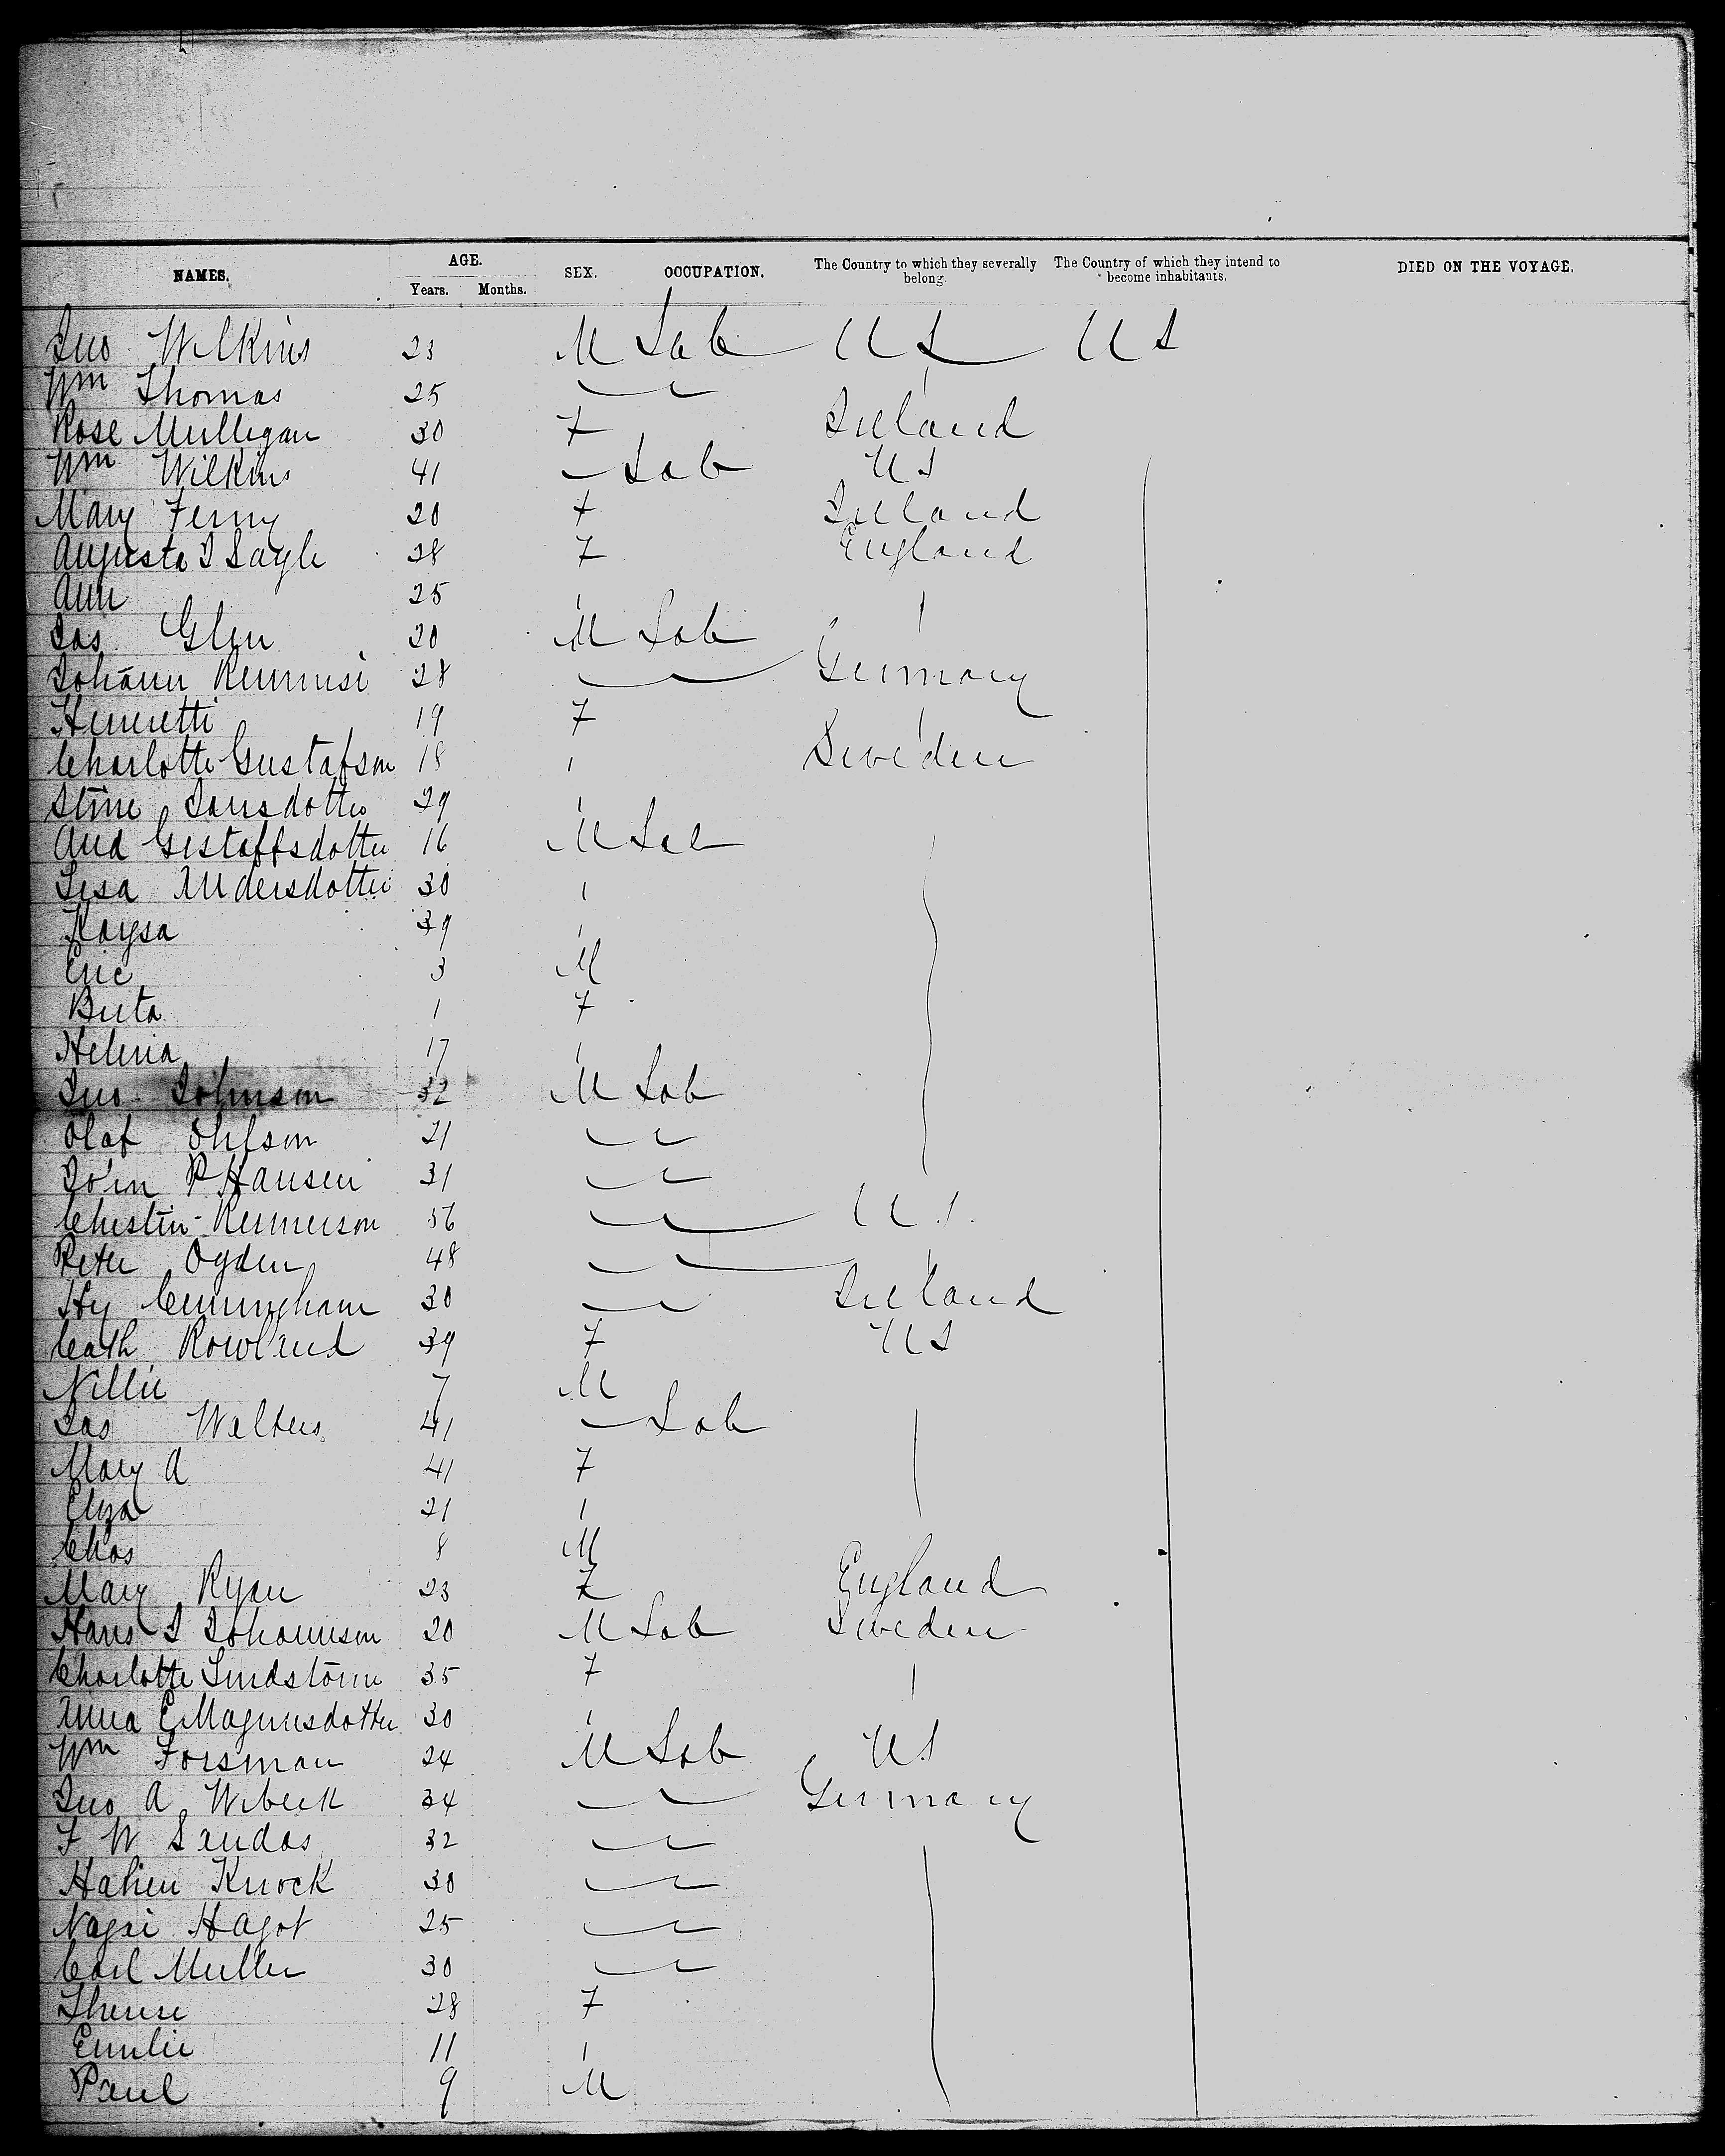 NAMES. AGE. SEX. OCCUPATION. The Country to which they severally belong. The Country of which they intend to become inhabitants. DIED ON THE VOYAGE.
Years. Months.
Jno Wilkins 23 M Lab U S U S
Wm Thomas 25
Rose Mulligan 30 F Ireland
Wm Wilkins 41 Lab U S
Mary Ferny 20 F Ireland
Augusta J Sayle 28 F England
Ann 25
Jas Glen 20 M Lab
Johann 28 Germany
Henretti 19 F
Charlotte Gustafson 18 Sweden
Stine Jansdotter 29
And Gustaffsdotter 16 M Lab
Lisa Andersdotter 30
Kaysa 39
Eric 3 M
Brita 1 F
Helena 17
Jno Johnson 32 M Lab
Olaf Ohlson 21
John P Hansen 31
Christin 56 U S
Peter Ogden 48
Hy Cunningham 30 Ireland
Cath Rowland 39 F U S
Nillie 7 M
Jas Walters 41 Lab
Mary A 41 F
Eliza 21
Chas 8 M
Mary Ryan 23 F England
Hans J Johannson 20 M Lab Sweden
Charlotte Lindstorm 35 F
Anna C Magnusdotter 30
Wm Forsman 24 M Lab U S
Jno A Wibeck 34 Germany
F W Sandas 32
Knock 30
Hagot 25
Carl Muller 30
Therese 28 F
Emilie 11
Paul 9 M